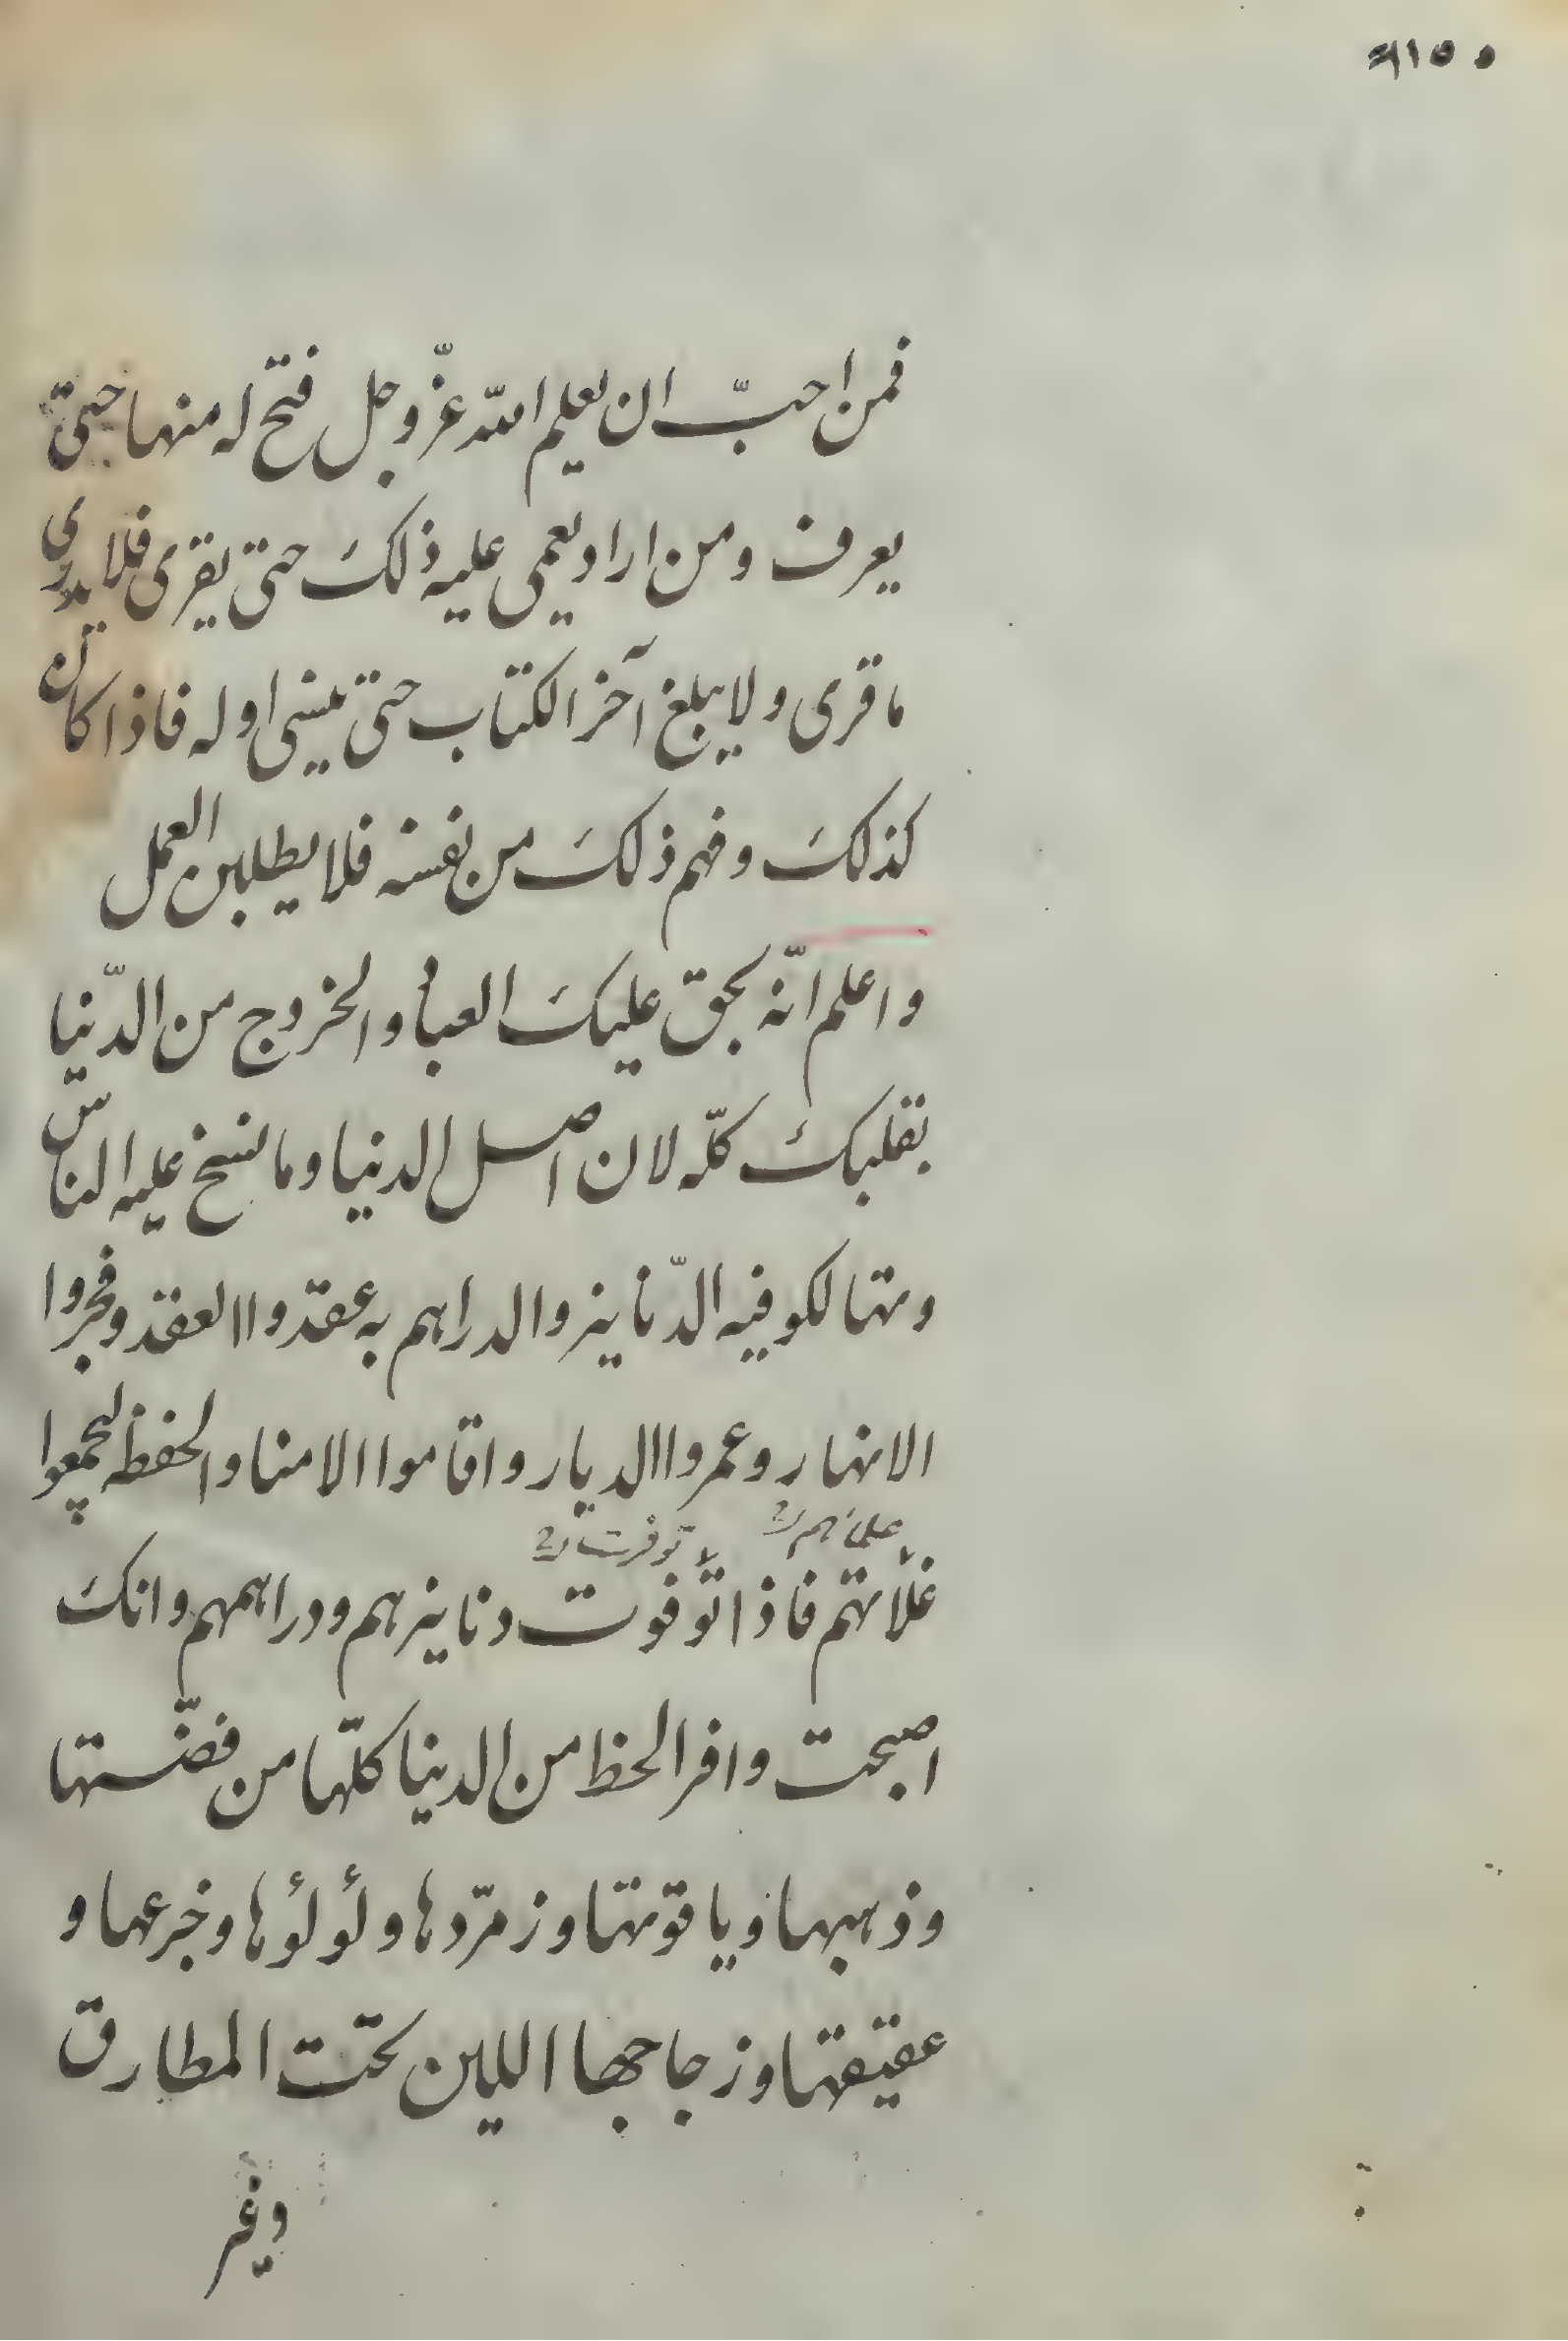 ٩١٥٥
فمن احبّ ان يعلم اللّه عزّ وجل فتح له منها حتى
يعرف ومن اراد يعمى عليه ذلك حتى يقرى فلا يدرى
ما قرى ولا يبلغ آخر الكتاب حتى ينسى اوله فاذا كان
كذلك وفهم ذلك من نفسه فلا يطلبن العمل
واعلم انّه يحق عليك العبأ والخروج من الدّنيا
بقلبك كلّه لان اصل الدنيا وما نسخ عليه الناس
وتهالكو فيه الدّنانير والدراهم به عقدوا العقد وفجروا
الانهار وعمروا الديار واقاموا الامنا والحفظه ليجمعوا
توفرت
غلّاتهم فاذا توّفوت دنانيرهم ودراهمهم وانك
اصبحت وافر الحظ من الدنيا كلّها من فضّتها
وذهبها وياقوتها وزمرّدها ولؤلؤها وجزعها و
عقيقها وزجاجها اللين تحت المطارق
وغير